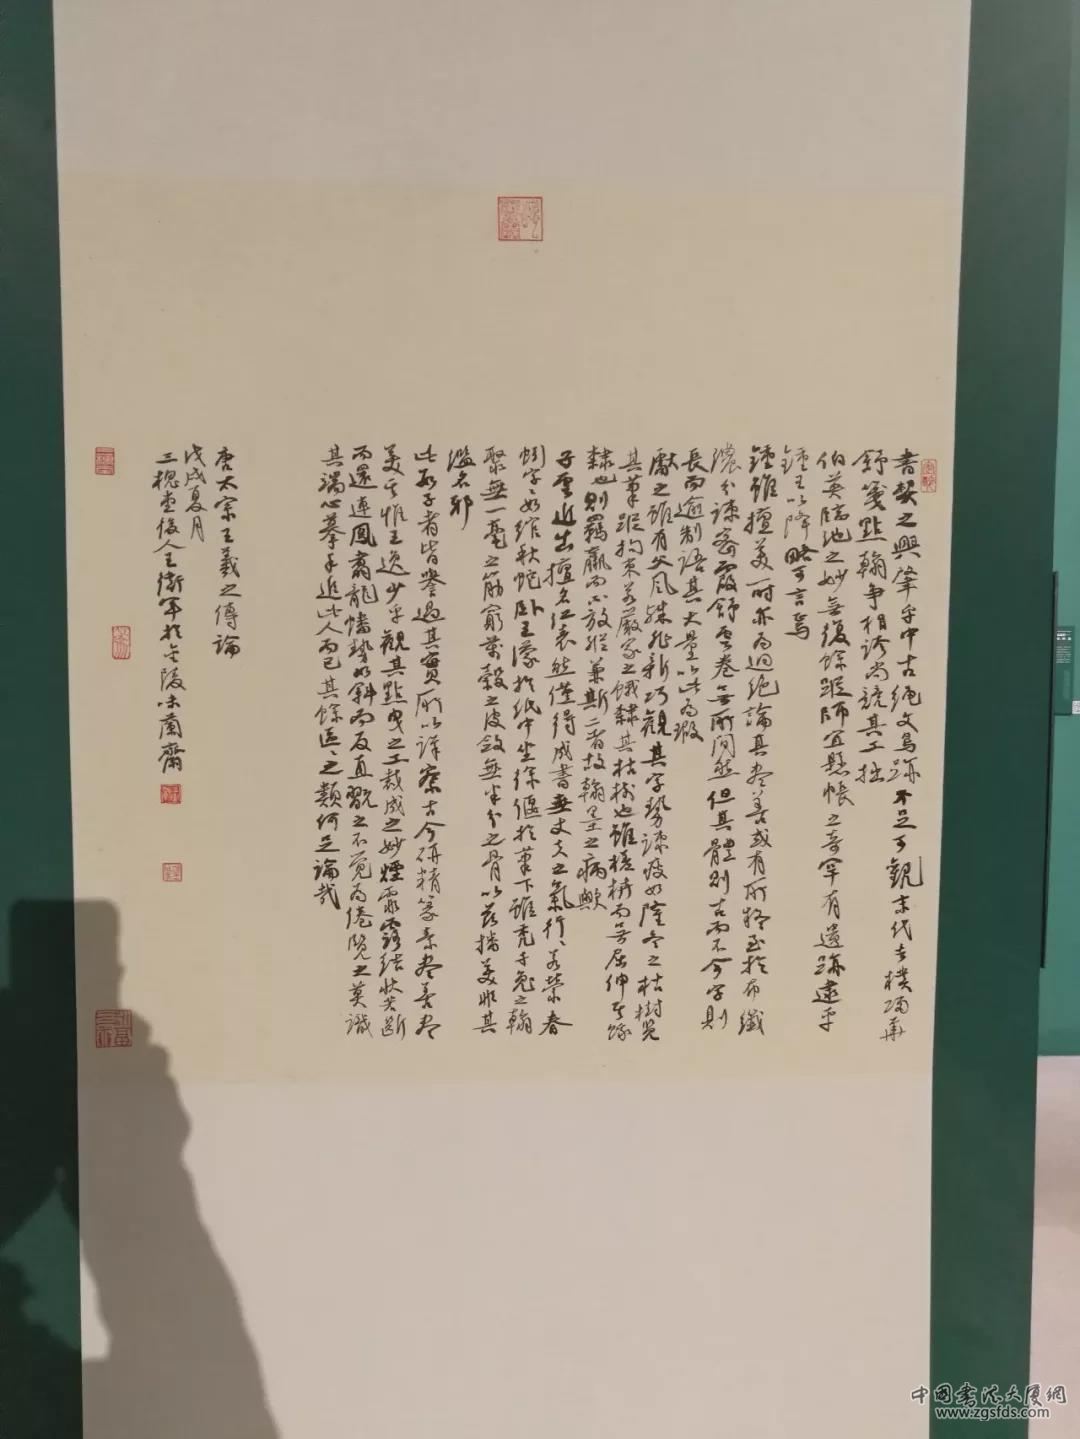 書契之興肇乎中古繩文鳥跡不足可觀末代去樸歸華
舒箋點翰爭相誇尚競其工拙
伯英臨池之妙無復餘蹤師宜懸帳之奇罕有遺跡逮乎
鍾王以降略可言焉
鍾雖擅美一時亦為迥絕論其盡善或有所疑至於布纖
濃分疎密霞舒雲卷無所間然但其體則古而不今字則
長而逾制語其大量以此為瑕
獻之雖有父風殊非新巧觀其字勢疎瘦如隆冬之枯樹覽
其筆蹤拘束若嚴家之餓隸其枯樹也雖槎枿而無屈伸其餓
隸也則羈羸而不放縱兼斯二者故翰墨之病歟
子雲近出擅名江表然僅得成書無丈夫之氣行〻若縈春
蚓字〻如綰秋蛇臥王濛於紙中坐徐偃於筆下雖禿千兔之翰
聚無一毫之筋窮萬穀之皮斂無半分之骨以茲播美非其
濫名邪
此數子者皆譽過其實所以詳察古今研精篆素盡善盡
美其惟王逸少乎觀其點曳之工裁成之妙煙霏露結狀若斷
而還連鳳翥龍蟠勢如斜而反直翫之不覺為倦覽之莫識
其端心慕手追此人而已其餘區〻之類何足論哉
唐太宗王羲之傳論
戊戌夏月
三槐堂後人王衛軍於金陵味蘭齋
中國書法大廈網
www.zgsfds.com